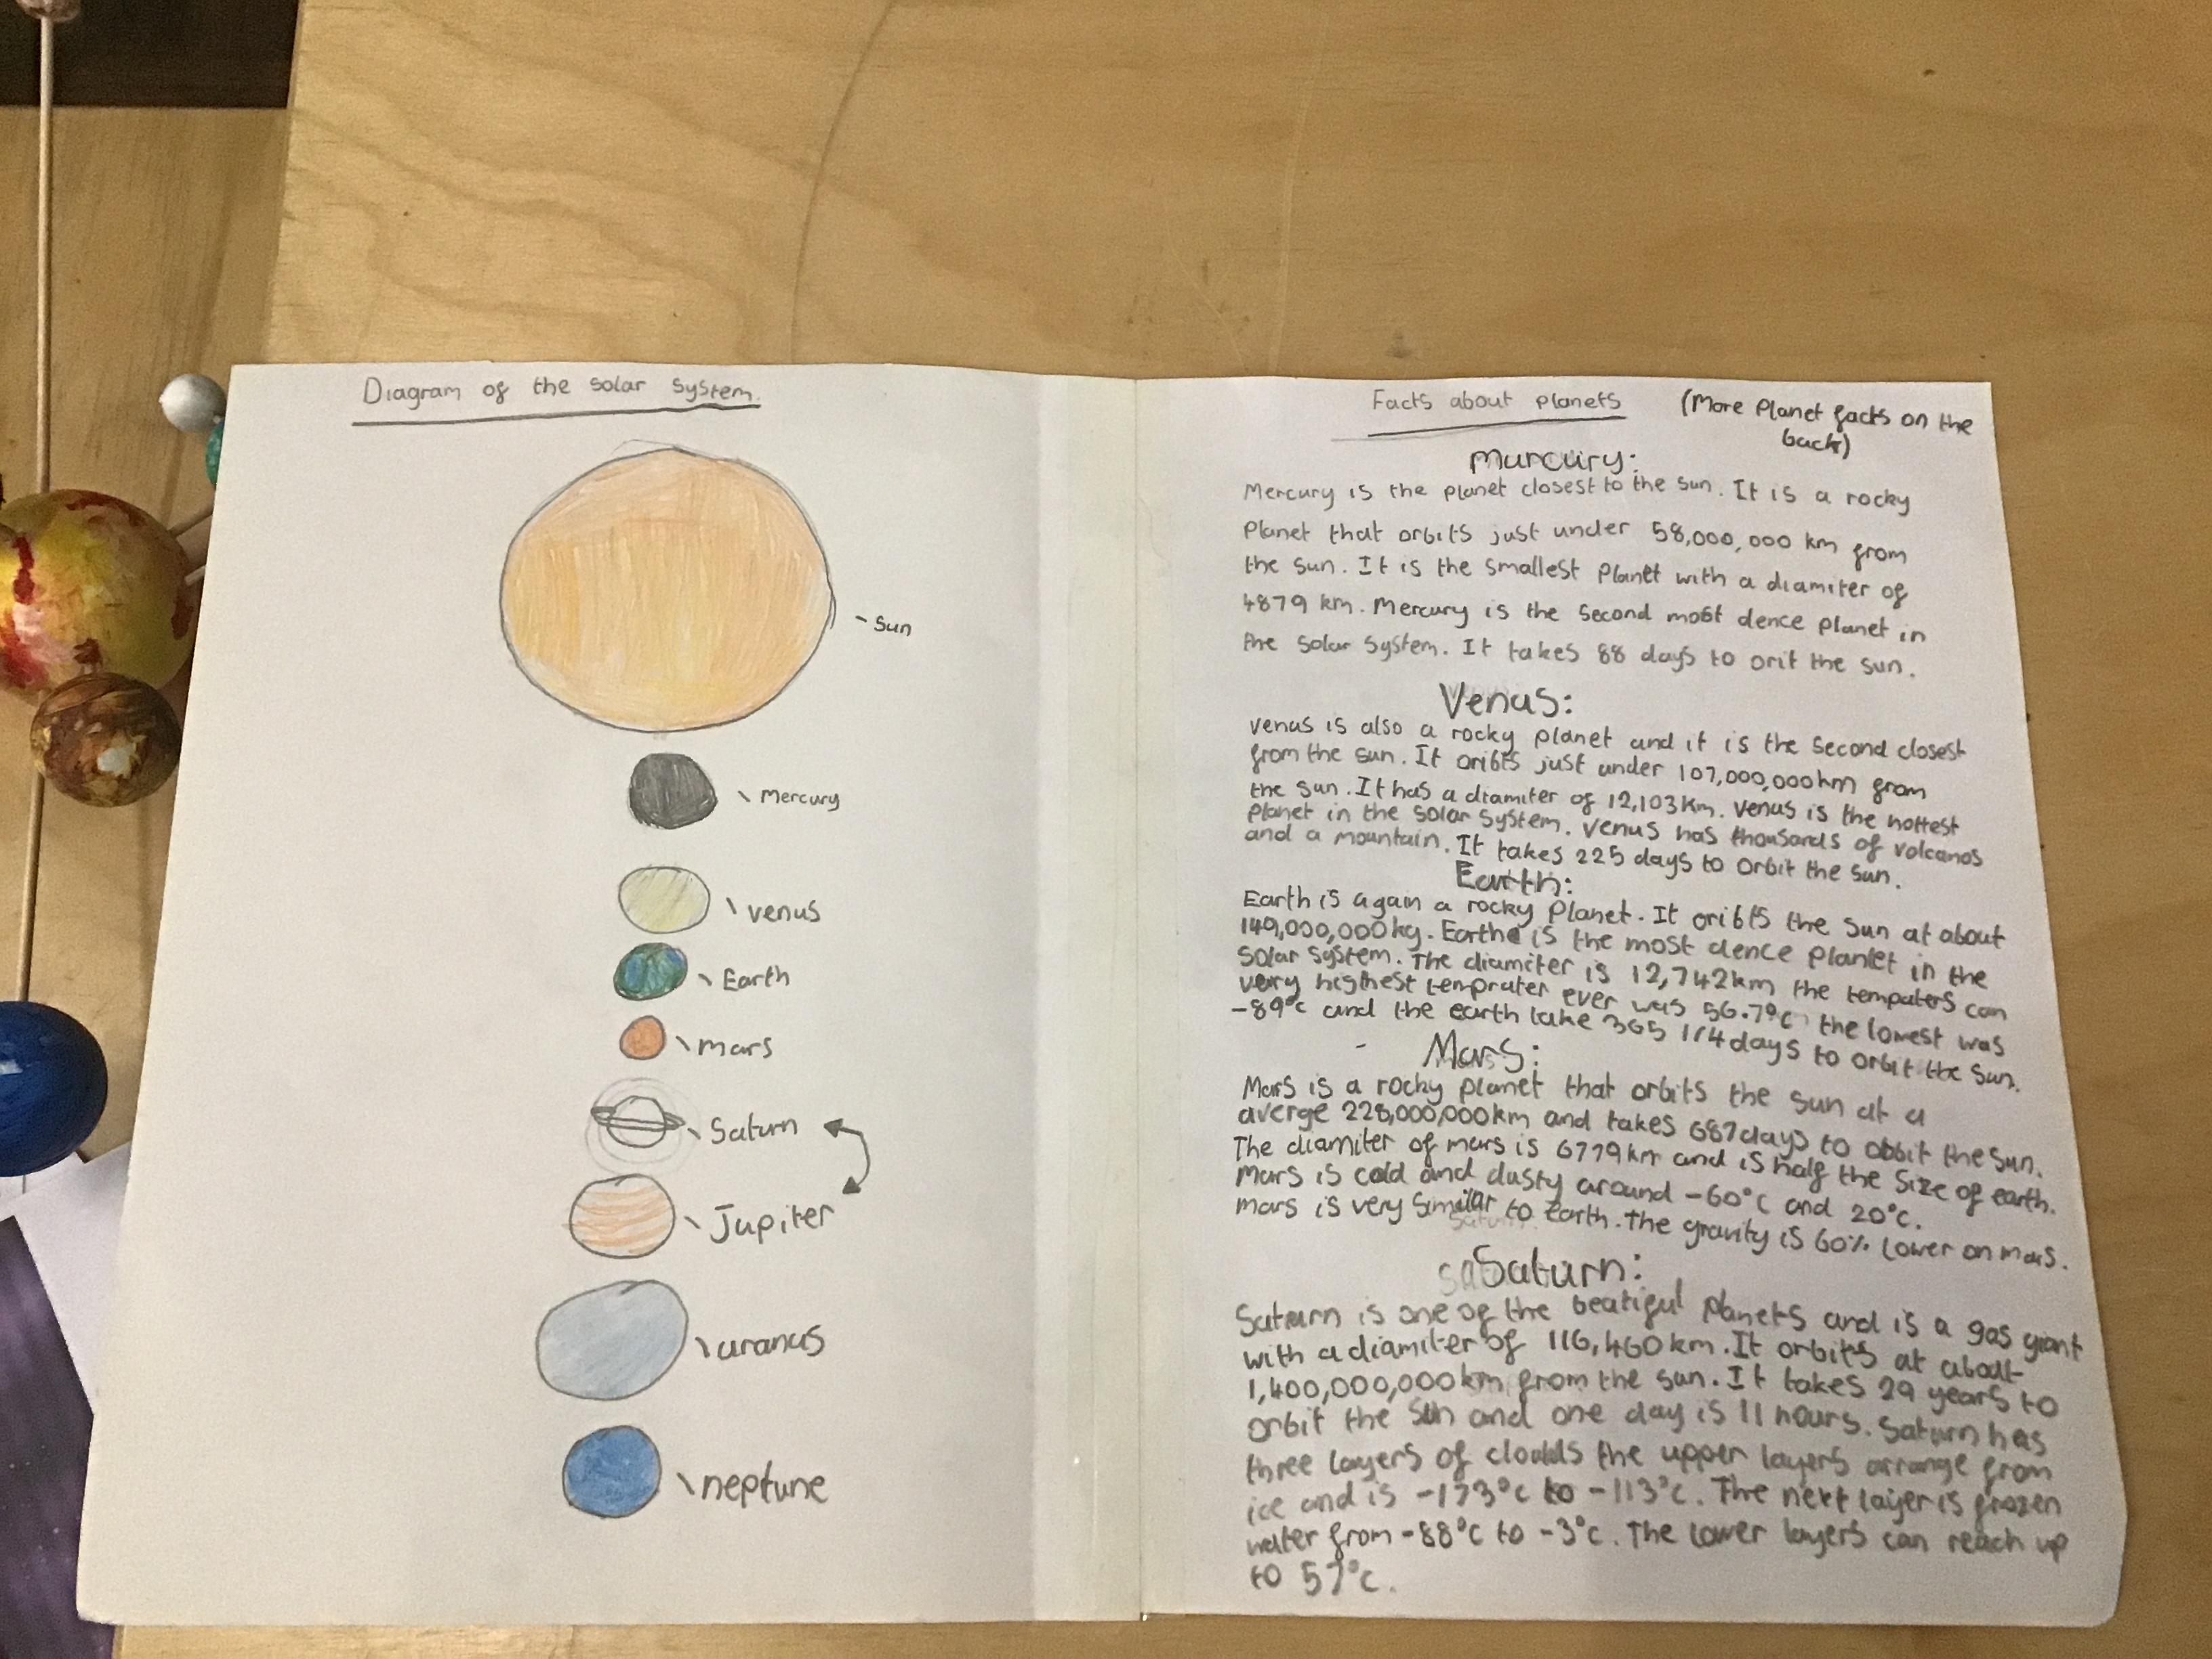 Diagram of the solar system.
Sun
Mercury
venus
Earth
mars
Saturn
Jupiter
uranus
neptune
Facts about planets
(More Planet facts on the
back)
murcury:
Mercury is the planet closest to the sun. It is a rocky
Planet that orbits just under 58,000,000 km from
the sun. It is the smallest Planet with a diamiter of
4879 km. Mercury is the second most dence planet in
the solar system. It takes 88 days to orit the sun.
Venus:
venus is also a rocky planet and it is the second closest
from the sun. It oribts just under 107,000,000km from
the sun. It has a diamiter of 12,103Km. Venus is the hottest
planet in the solar system. Venus has thousands of volcanos
and a mountain. It takes 225 days to orbit the sun.
Earth:
Earth is again a rocky Planet. It oribts the sun at about
149,000,000kg. Earth is the most dence planlet in the
solar system. The diamiter is 12,742km the tempaters can
very highest temprater ever was 56.7°c the lowest was
-89°c and the earth take 365 1/4 days to orbit the sun.
Mars:
Mars is a rocky planet that orbits the sun at a
averge 228,000,000km and takes 687days to obbit the sun.
The diamiter of mars is 6779km and is half the size of earth.
Mars is cold and dusty around -60°c and 20°c.
mars is very similar to Earth. The gravity is 60% lower on mars.
Saturn:
Saturn is one of the beatiful planets and is a gas giant
with a diamiter of 116,460km. It orbits at about
1,400,000,000km from the sun. It takes 29 years to
orbit the sun and one day is 11 hours. Saturn has
three layers of clouds the upper layers arrange from
ice and is -173°c to -113°c. The next layer is frozen
water from -88°c to -3°c. The lower layers can reach up
to 57°c.